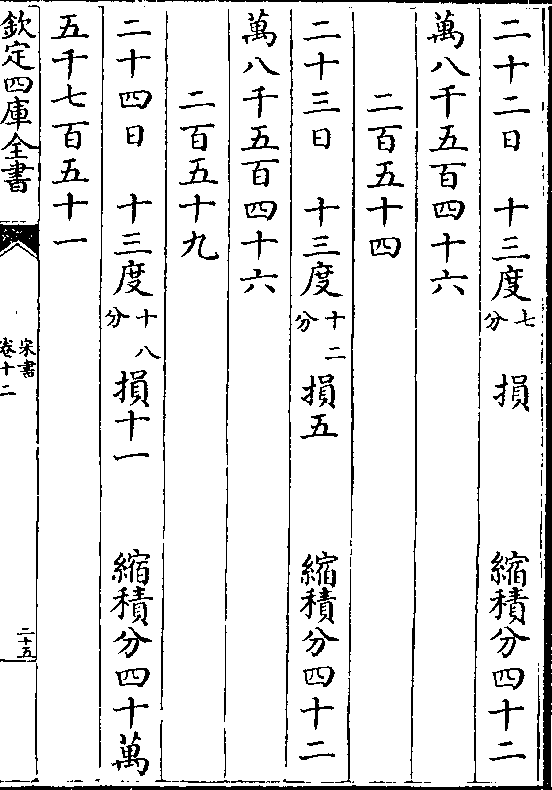 二十二日　十三度七分　損　縮積分四十二
萬八千五百四十六
二百五十四
二十三日　十三度十二分　損五　縮積分四十二
萬八千五百四十六
二百五十九
二十四日　十三度十八分　損十一　縮積分四十萬
五千七百五十一
欽定四庫全書　宋書卷十二　二十五